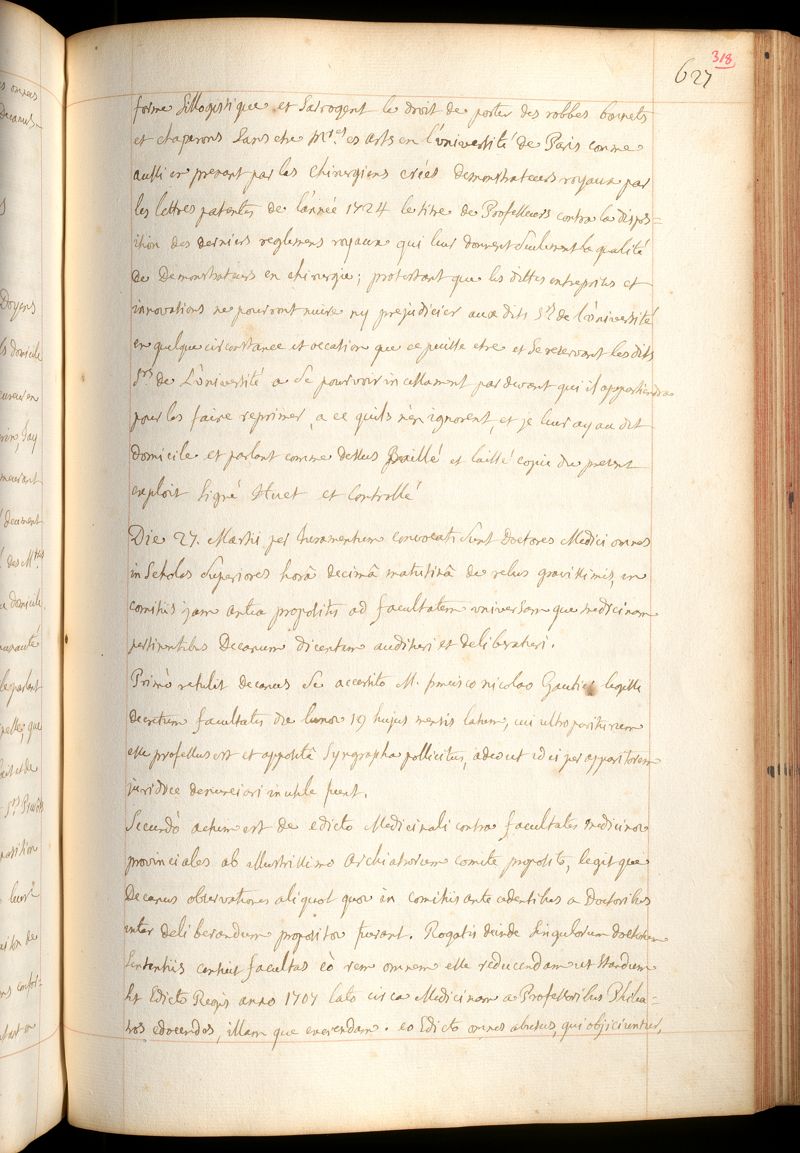 318
627
forme sillogistique et sarrogent le droit de porter des robbes bonnets
et chaperons sans etre Mtres es arts en l'université de Paris comme
aussi en prenant par les chirurgiens créés demonstrateurs royaux par
les lettres patentes de l'année 1724 le titre de Professeurs contre la dispos=
ition des derniers reglemens royaux qui leur donnent seulement la qualité
de Demonstrateurs en chirurgie; protestant que les dittes entreprises et
innovations ne pourront nuire ny prejudicier aux dits Srs de l'université
en quelque circonstance et occation que ce puisse etre et se reservant les dits
Srs de L'université a se pourvoir incessament par devant qui il appartiendra
pour les faire reprimer, a ce quils n'en ignorent, et je leur ay au dit
domicile et parlant comme dessus baillé et laissé copie du present
exploit signé Huet et Controllé
Die 27. Martii per juramentum convocati sunt Doctores Medici omnes
in Scholas Superiores horâ decimâ matutinâ de rebus gravissimis, in
comitiis jam antea propositis ad facultatem universam que medicinam
pertinentibus Decanum dicentem audituri et deliberaturi.
Primò retulit decanus se accersito M. francisco nicolao Gautier legisse
decretum facultatis die lunae 19 hujus mensis latum, cui ultro pariturum
esse professus est et apposità syngrapha pollicitus, adeo ut id ei per apparitorem
juridice denunciari inutile fuerit.
Secundò actum est de edicto Medicinali contra facultates medicinae
provinciales ab illustrissimo Archiatrorum comite proposito, legit que
Decanus observationes aliquot quae in comitiis antecedentibus a Doctoribus
inter deliberandum propositae fuerant. Rogatis deinde singulorum doctorum
sententiis censuit facultas eò rem omnem esse reducendam ut standum
sit Edicto Regis anno 1707 lato circa Medicinam a Professoribus Philia=
tros edocendos, illam que exercendam. eo Edicto omnes abusus, qui objiciuntur,